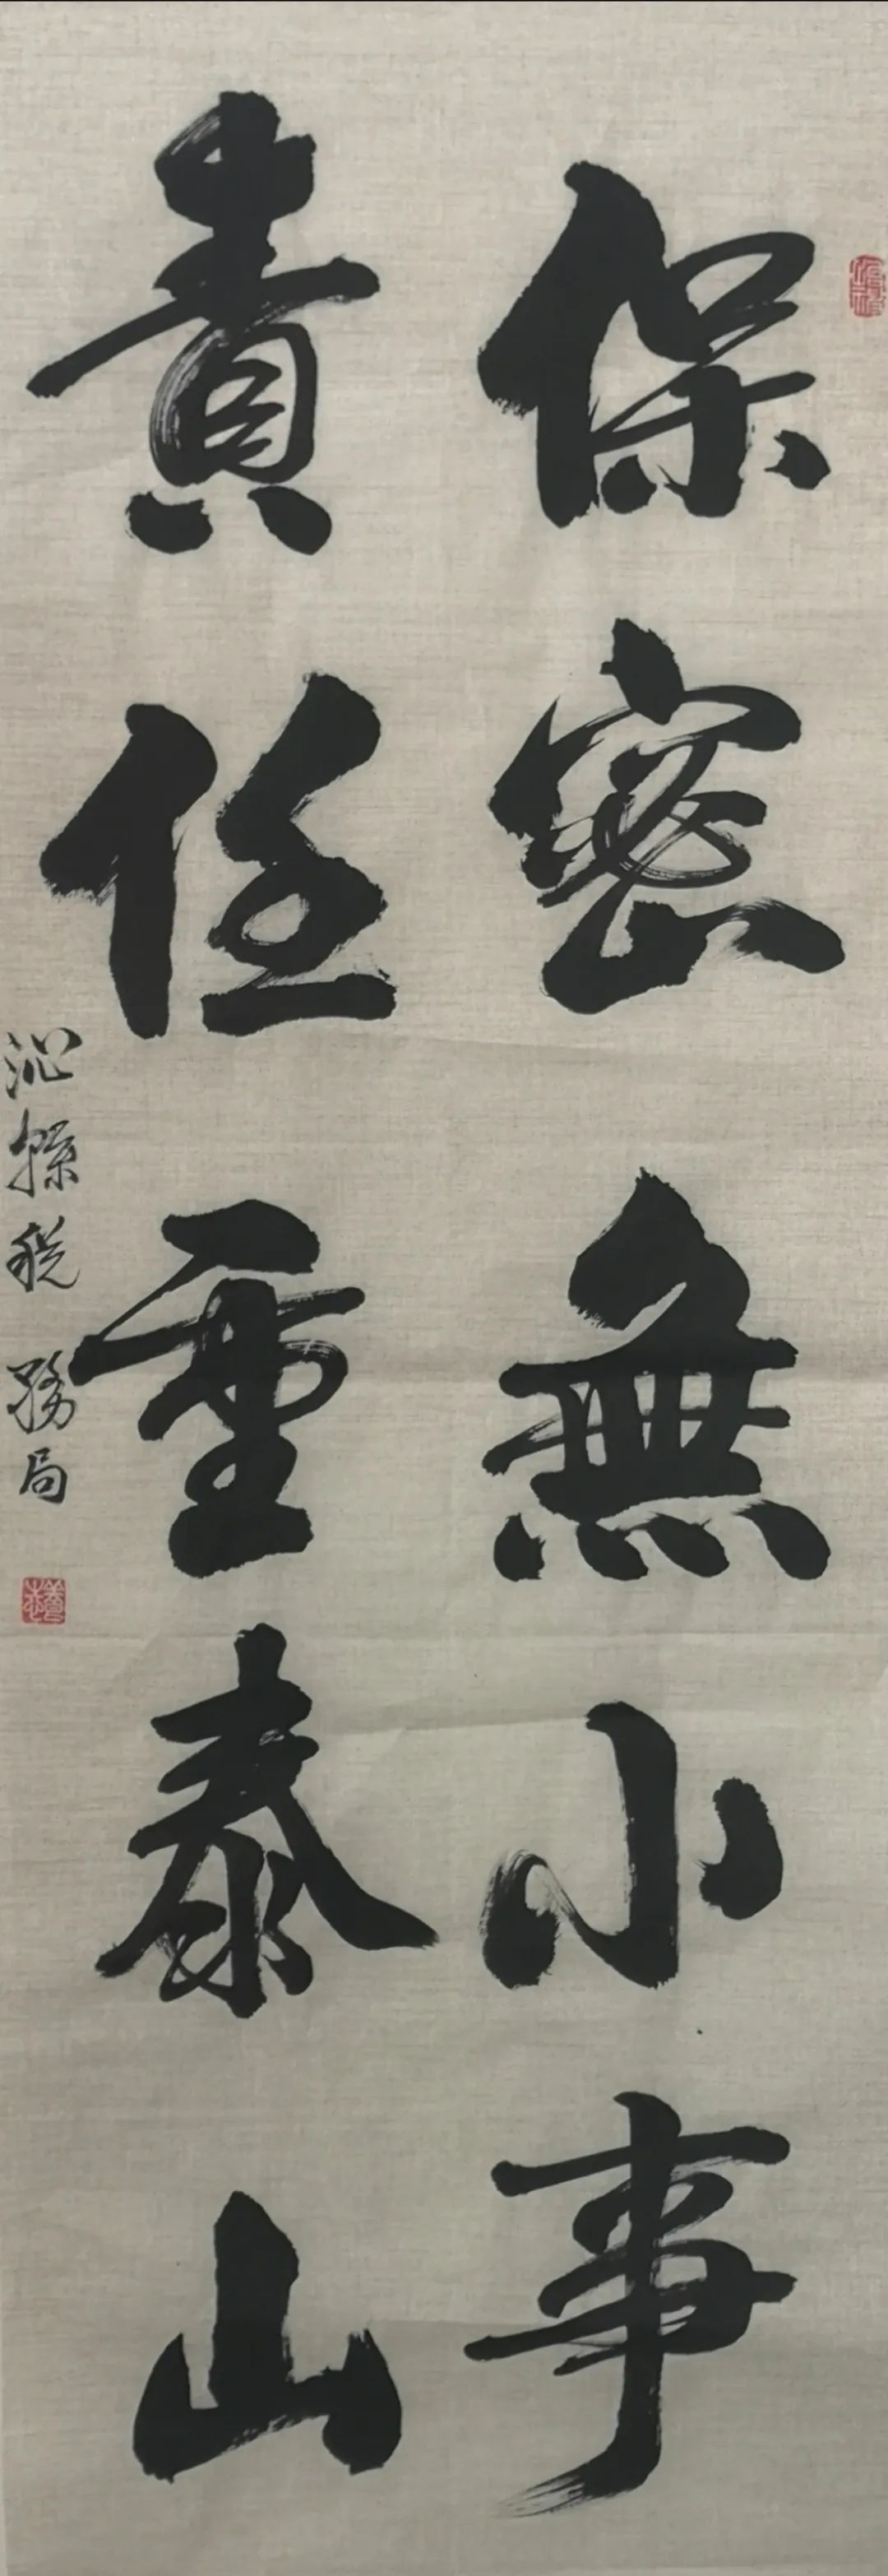 保密無小事
責任重泰山
沁縣税務局